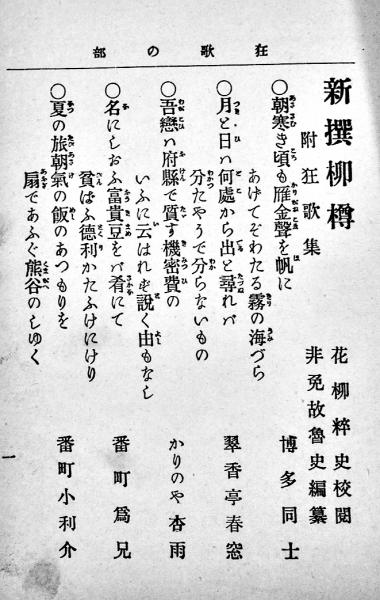 狂歌の部
新撰柳樽
附狂歌集
花柳粹史校閱
非免故魯史編纂
〇朝寒き頃も雁金聲を帆に
あけてぞわたる霧の海づら
博多同士
〇月と日ハ何處から出と尋れバ
分たやうで分らないもの
翠香亭春窓
〇吾戀ハ府縣で質す機密費の
いふに云はれず說く由もなし
かりのや杏雨
〇名にしおふ富貴豆をバ肴にて
貧ばふ德利かたふけにけり
番町爲兄
〇夏の旅朝氣の飯のあつもりを
扇であふぐ熊谷のしゆく
番町小利介
一